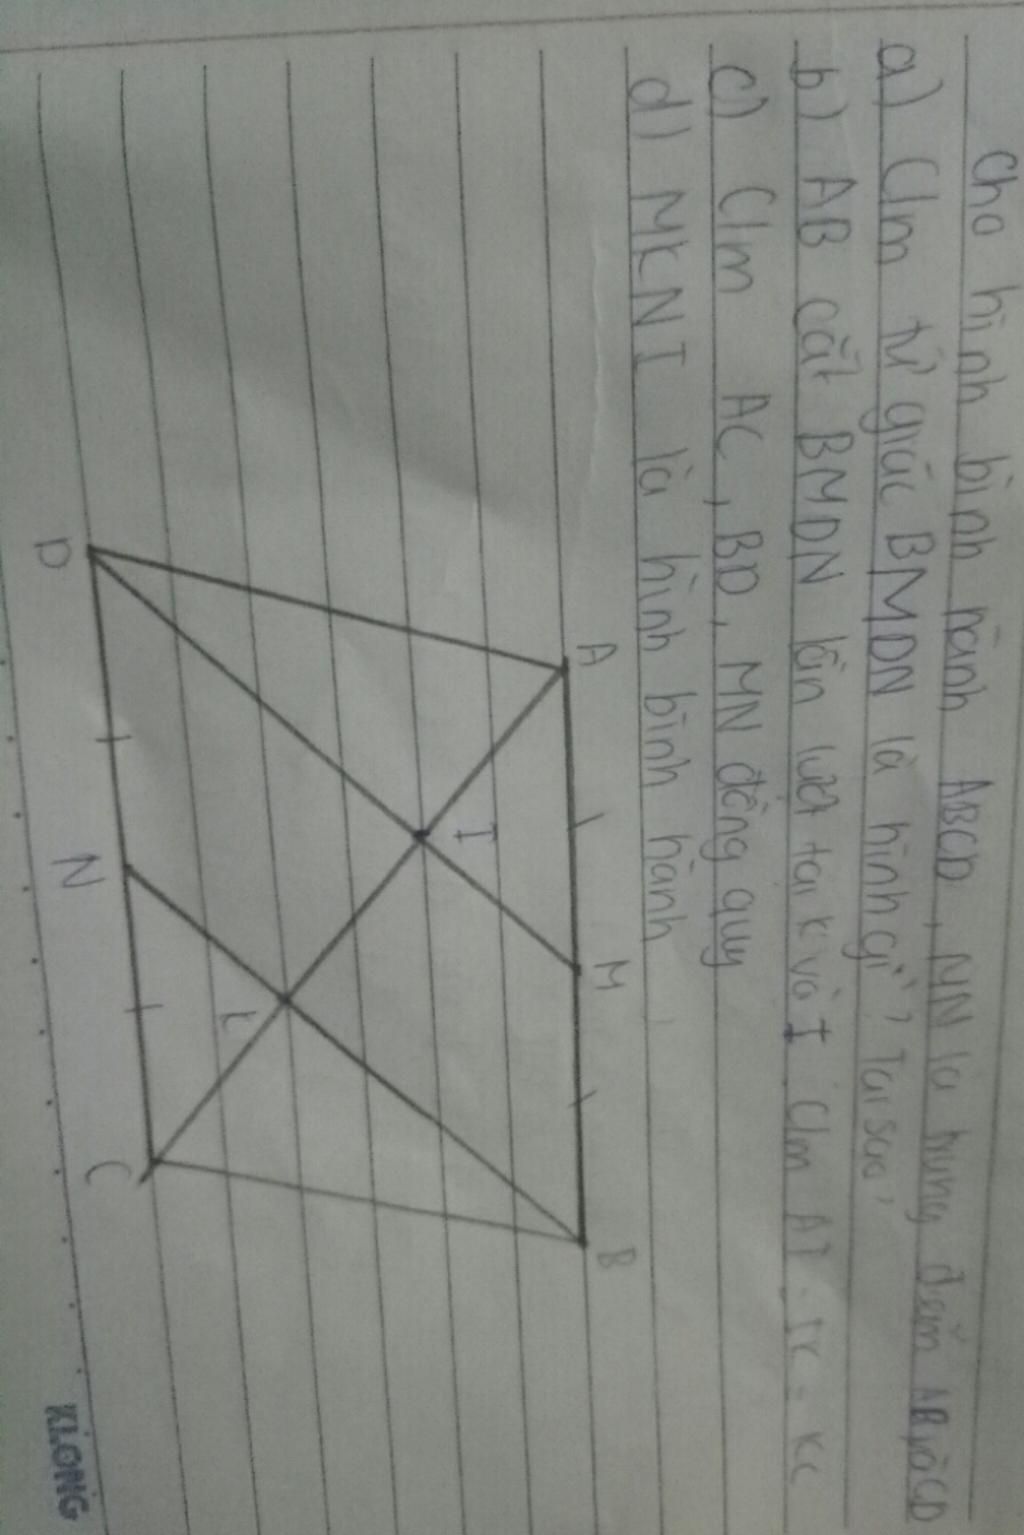 Cho hình bình hành ABCD, MN là trung điểm AB và CD
a) C/m tứ giác BMDN là hình gì? Tại sao?
b) AB cắt BMDN lần lượt tại K và I. C/m AI = IK = KC
c) C/m AC, BD, MN đồng quy
d) MKNI là hình bình hành
A
M
B
I
K
D
N
C
KLONG